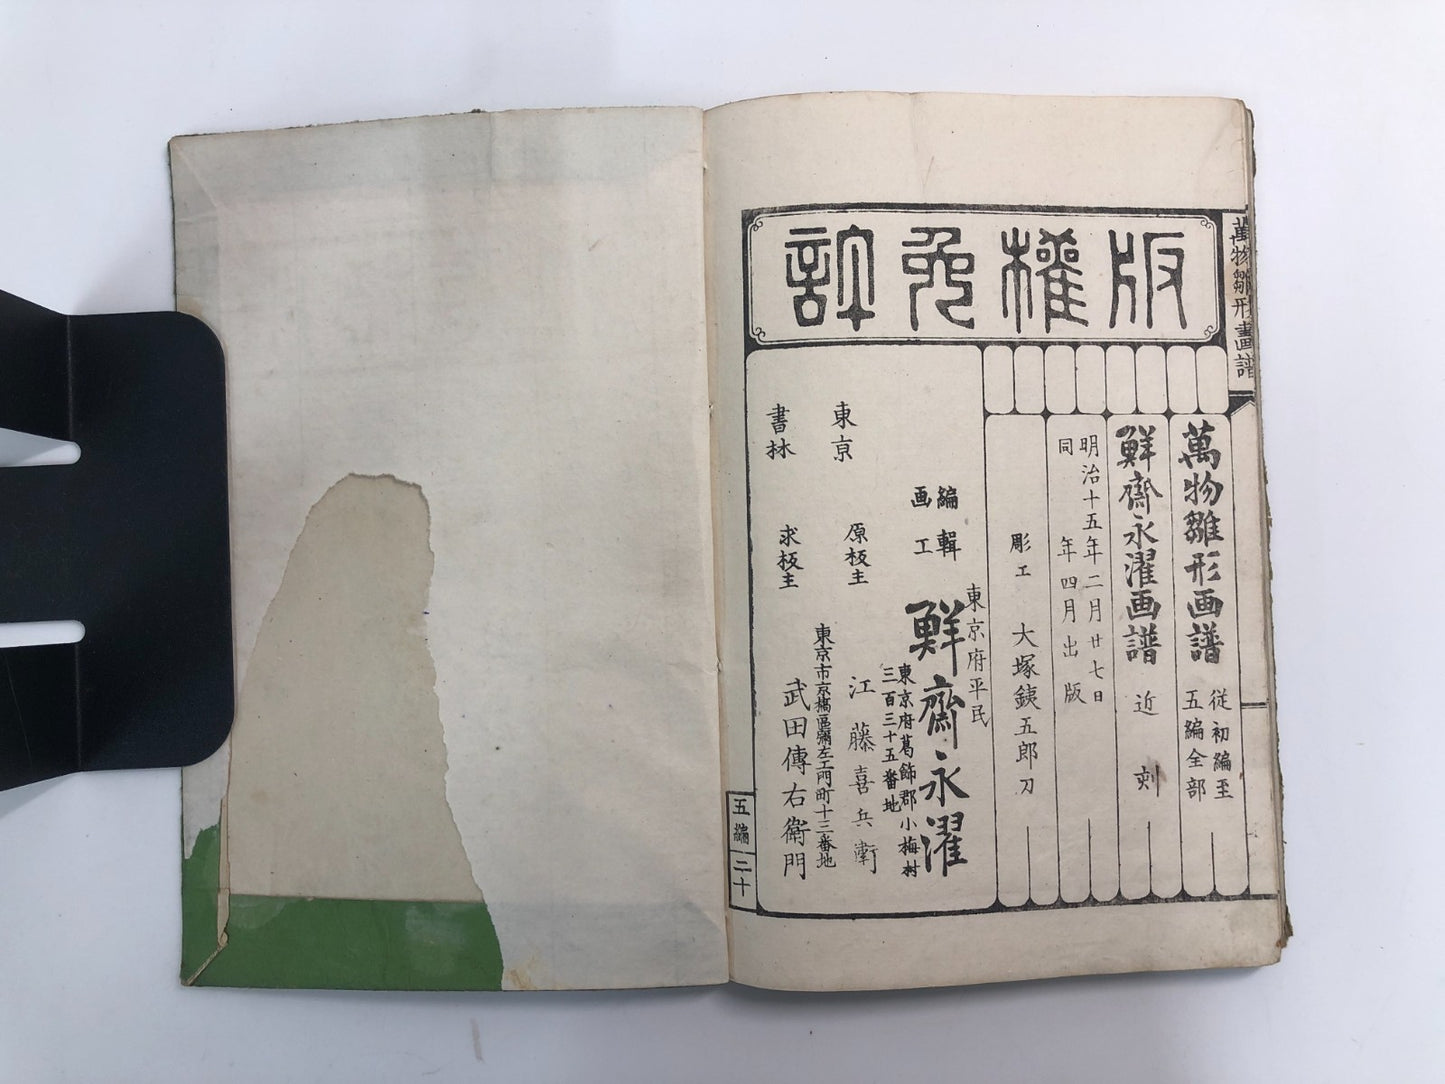 萬物雛形畫譜
版權免許
萬物雛形画譜
従初編至
五編全部
鮮齋永濯画譜
近刻
明治十五年二月廿七日
同年四月出版
彫工 大塚銕五郎刀
編輯
画工
東京府平民
鮮齋永濯
東京府葛飾郡小梅村
三百三十五番地
東京
原板主
江藤喜兵衛
書林
求板主
東京市京橋區彌左エ門町十三番地
武田傳右衛門
五編
二十